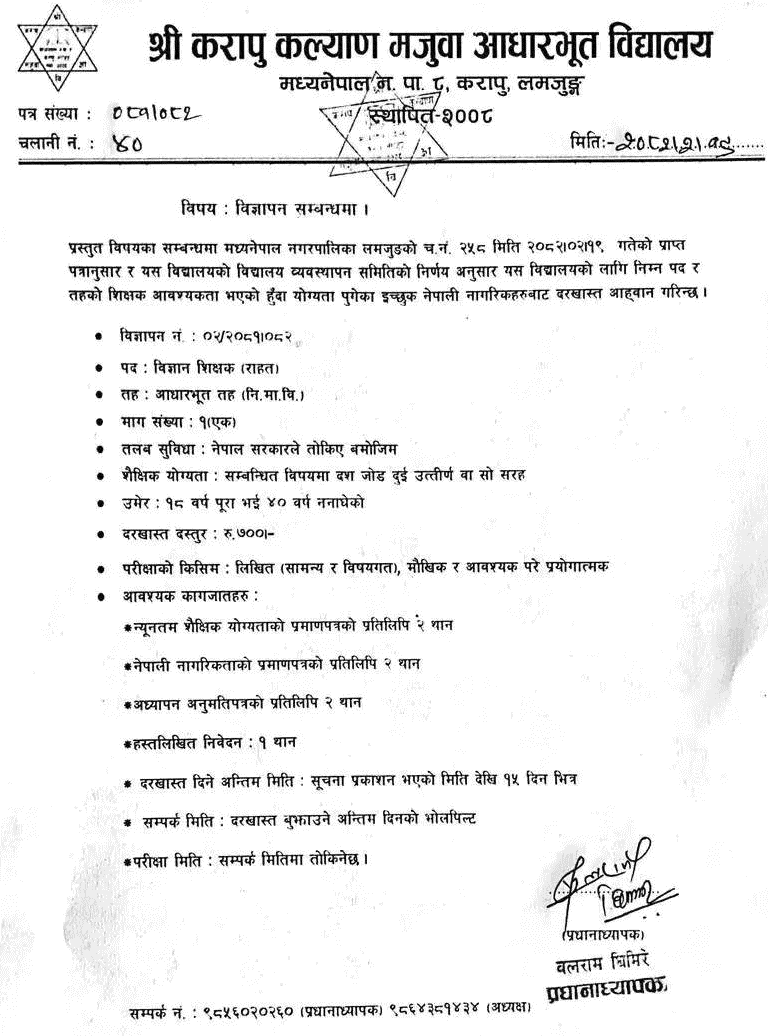 श्री करापु कल्याण मजुवा आधारभूत विद्यालय
मध्यनेपाल न. पा. ८, करापु, लमजुङ्ग
पत्र संख्या : ०८१/०८२
स्थापित-२००८
चलानी नं. : ४०
मितिः-२०८२/२/१९
विषय : विज्ञापन सम्बन्धमा ।
प्रस्तुत विषयका सम्बन्धमा मध्यनेपाल नगरपालिका लमजुङको च.नं. २५८ मिति २०८२/०२/१९ गतेको प्राप्त
पत्रानुसार र यस विद्यालयको विद्यालय व्यवस्थापन समितिको निर्णय अनुसार यस विद्यालयको लागि निम्न पद र
तहको शिक्षक आवश्यकता भएको हुँदा योग्यता पुगेका इच्छुक नेपाली नागरिकहरुबाट दरखास्त आह्वान गरिन्छ ।
• विज्ञापन नं. : ०२/२०८१/०८२
• पद : विज्ञान शिक्षक (राहत)
• तह : आधारभूत तह (नि.मा.वि.)
• माग संख्या : १(एक)
• तलब सुविधा : नेपाल सरकारले तोकिए बमोजिम
• शैक्षिक योग्यता : सम्बन्धित विषयमा दश जोड दुई उत्तीर्ण वा सो सरह
• उमेर : १८ वर्ष पूरा भई ४० वर्ष ननाघेको
• दरखास्त दस्तुर : रु.७००।-
• परीक्षाको किसिम : लिखित (सामन्य र विषयगत), मौखिक र आवश्यक परे प्रयोगात्मक
• आवश्यक कागजातहरु :
*न्यूनतम शैक्षिक योग्यताको प्रमाणपत्रको प्रतिलिपि २ थान
*नेपाली नागरिकताको प्रमाणपत्रको प्रतिलिपि २ थान
*अध्यापन अनुमतिपत्रको प्रतिलिपि २ थान
*हस्तलिखित निवेदन : १ थान
* दरखास्त दिने अन्तिम मिति : सूचना प्रकाशन भएको मिति देखि १५ दिन भित्र
* सम्पर्क मिति : दरखास्त बुझाउने अन्तिम दिनको भोलपिल्ट
*परीक्षा मिति : सम्पर्क मितिमा तोकिनेछ ।
(प्रधानाध्यापक)
बलराम घिमिरे
प्रधानाध्यापक
सम्पर्क नं. : ९८५६०२०२६० (प्रधानाध्यापक) ९८६४३८१४३४ (अध्यक्ष)